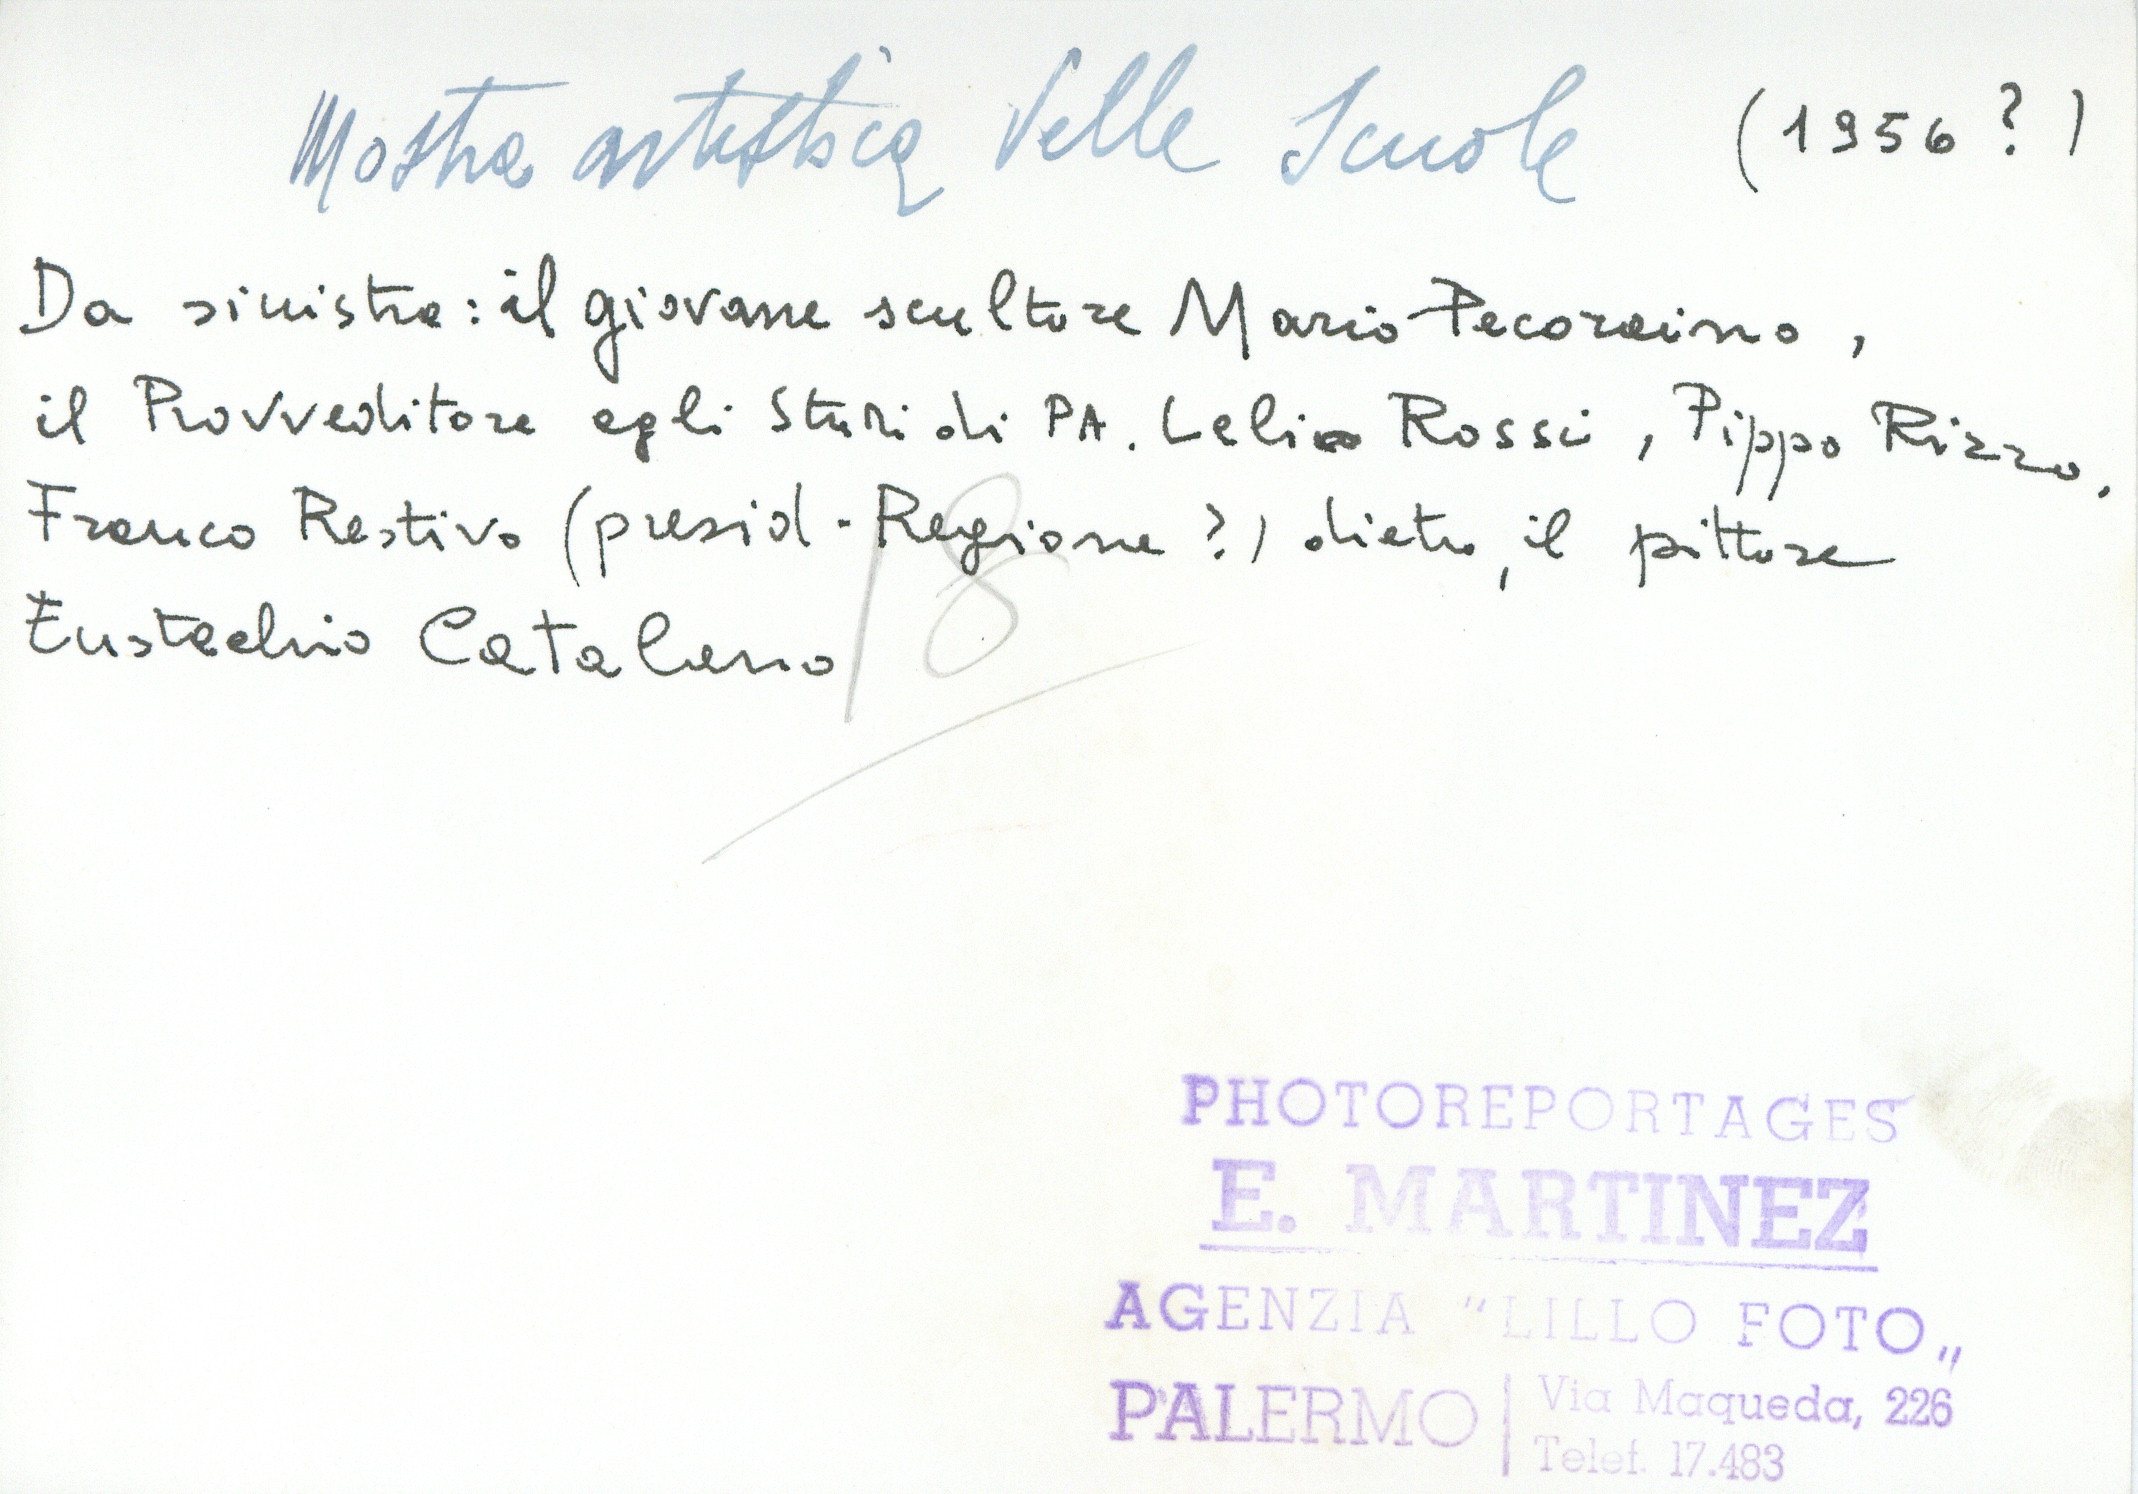 Mostra artistica delle Scuole (1956?)
Da sinistra: il giovane scultore Mario Pecoraino,
il Provveditore agli Studi di PA. Lelio Rossi, Pippo Rizzo,
Franco Restivo (presid. Regione?) dietro, il pittore
Eustachio Catalano
18
PHOTOREPORTAGES
E. MARTINEZ
AGENZIA "LILLO FOTO„
PALERMO | Via Maqueda, 226
Telef. 17.483